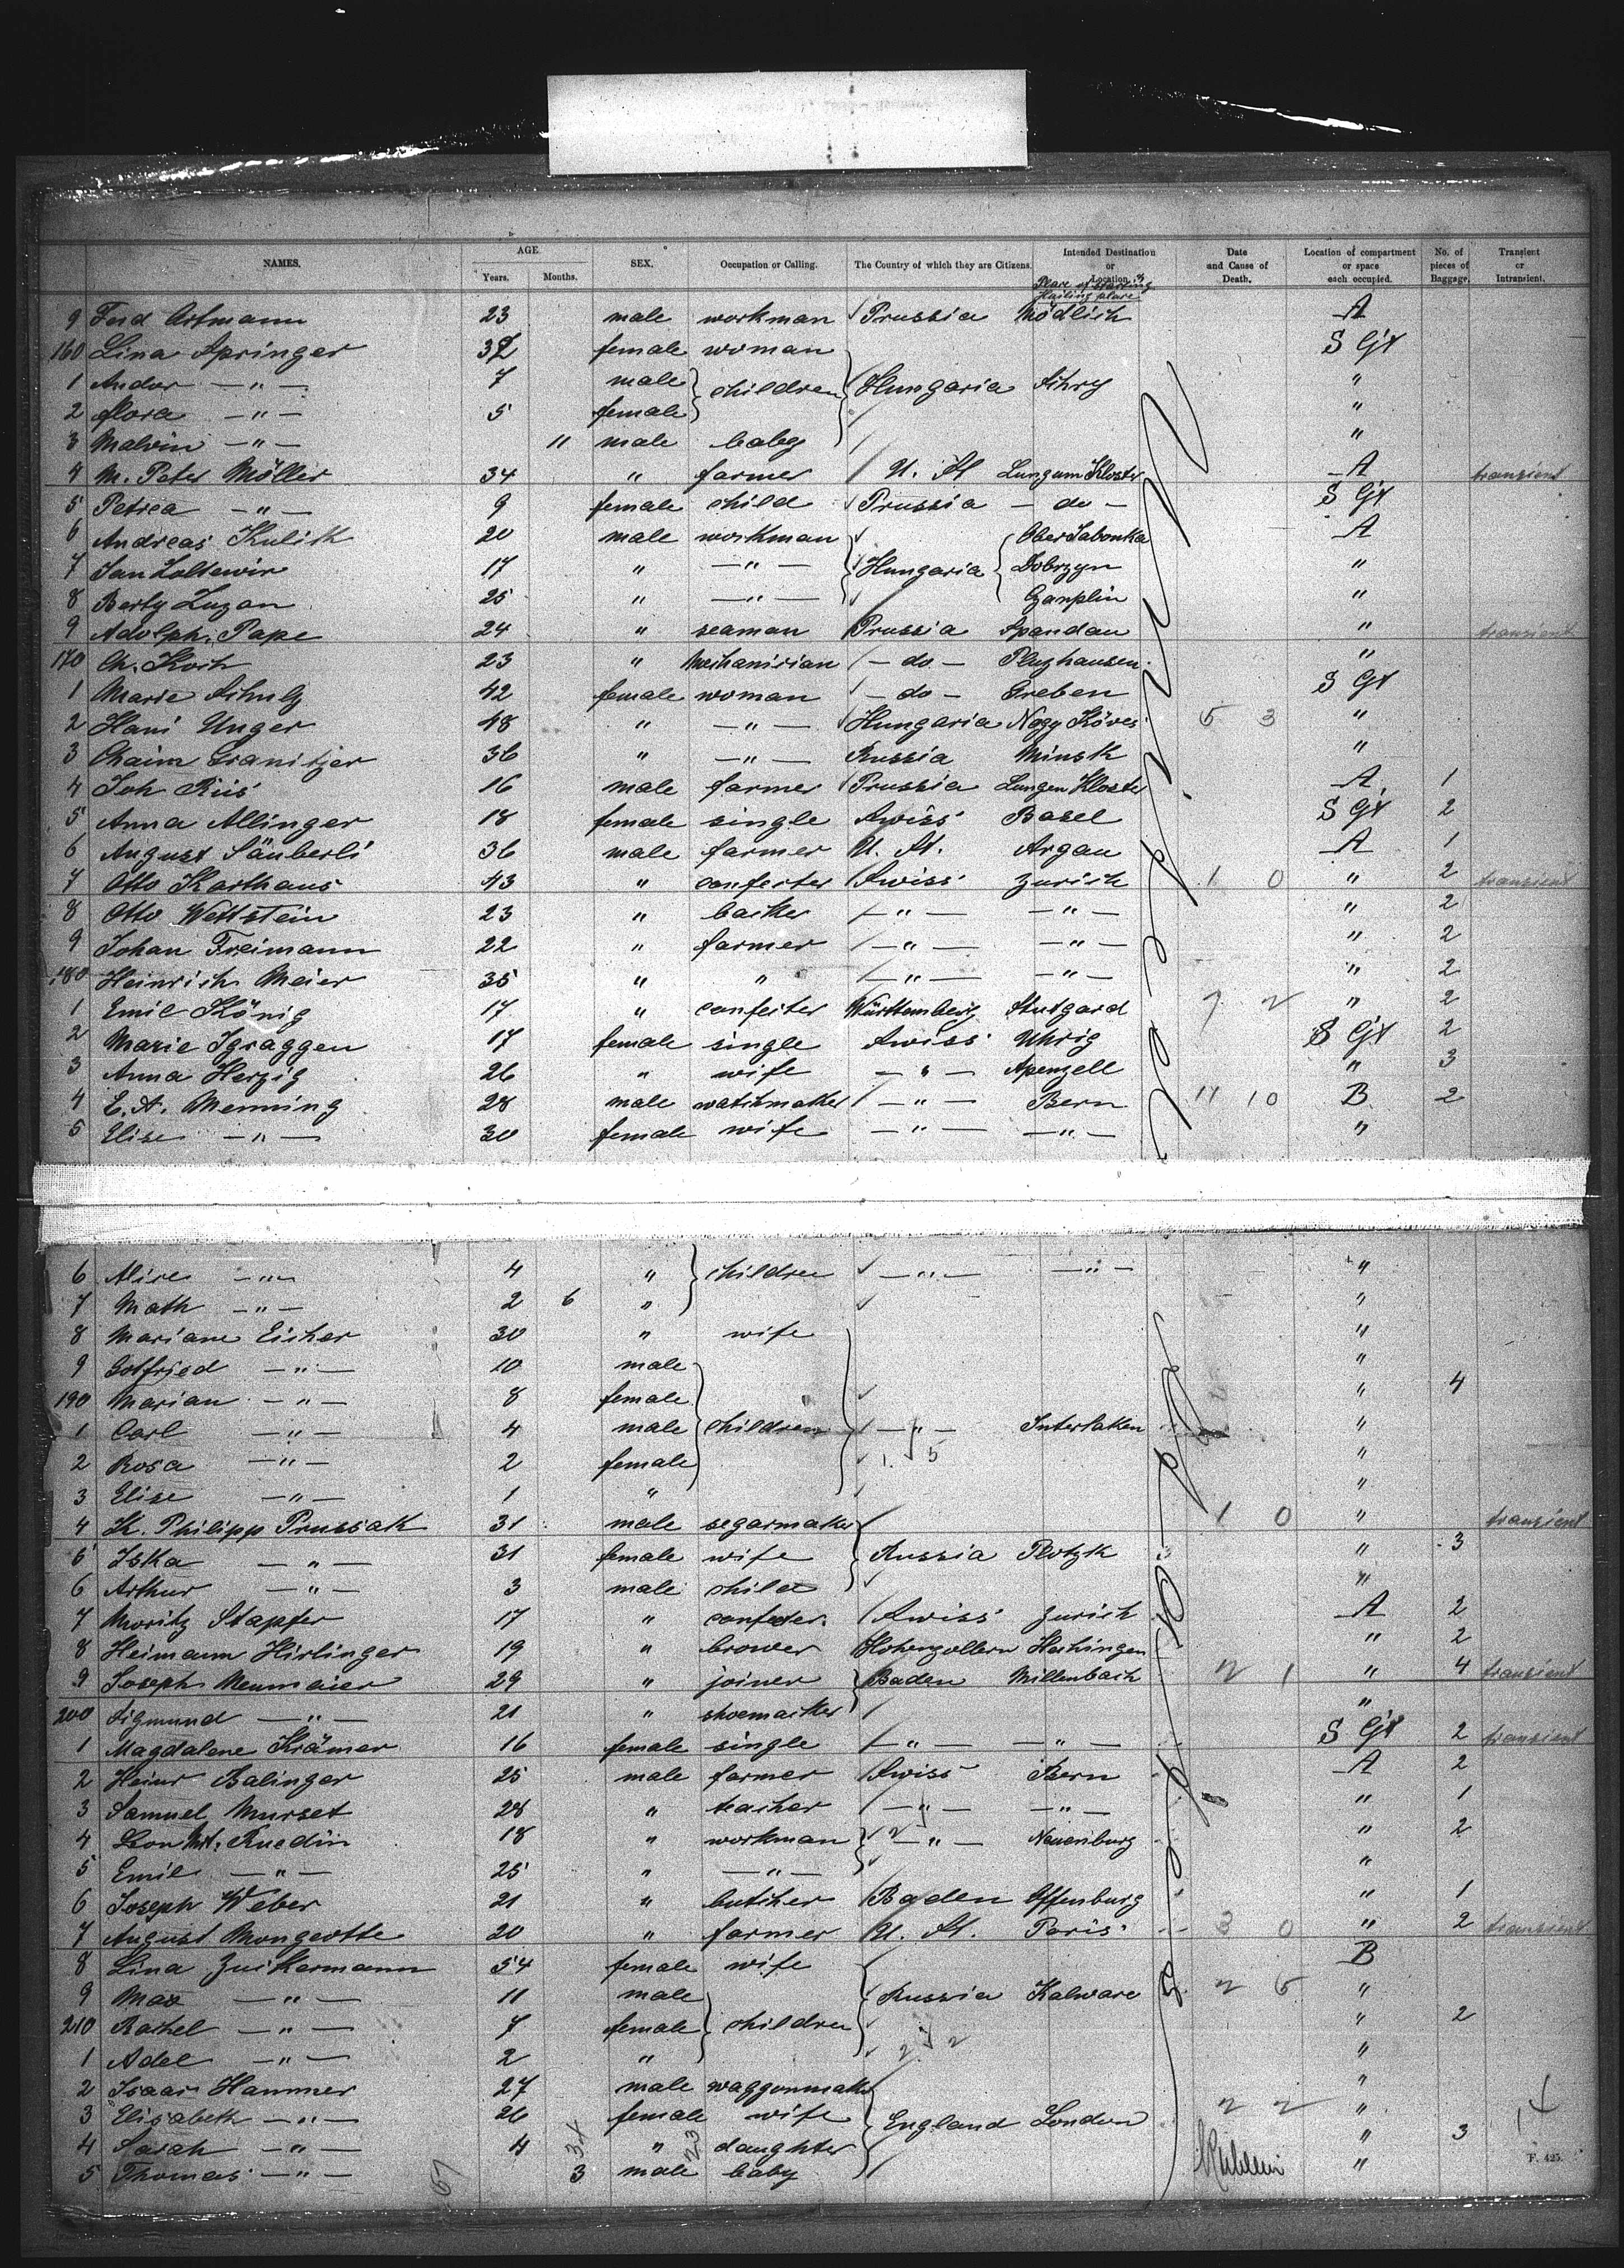 NAMES. AGE. Years. Months. SEX. Occupation or Calling. The Country of which they are Citizens. Intended Destination or Location. Date and Cause of Death. Location of compartment or space each occupied. No. of pieces of Baggage. Transient or Intransient.
Place of starting
Hailing place
9 Ferd Artmann 23 male workman Prussia Mödlich A
160 Lina Springer 32 female woman S Gt
1 Andor —"— 7 male children Hungaria "
2 flora —"— 5 female "
3 Malvin —"— 11 male baby "
4 M. Peter Möller 34 " farmer U. St Lungum Kloster A transient
5 Petrea —"— 9 female child Prussia — do — S Gt
6 Andreas Kulik 20 male workman Ober Sabonka A
7 Jan 17 " —"— Hungaria Dobrzyn "
8 Berty Luzan 25 " —"— "
9 Adolph Pape 24 " seaman Prussia Spandau " transient
170 Ch. Koch 23 " Mechanician — do — "
1 Marie Schulz 42 female woman — do — Greben S Gt
2 Hani Unger 48 " —"— Hungaria Nagy Köves 5 3 "
3 Chaim Granitzer 36 " —"— Russia Minsk "
4 Joh Riis 16 male farmer Prussia Lungen Kloster A 1
5 Anna Allinger 18 female single Swiss Basel S Gt 2
6 August Säuberli 36 male farmer U. St. Argau A 1
7 Otto Karthaus 43 " confecter Swiss Zurich 1 0 " 2 transient
8 Otto Wettstein 23 " backer —"— —"— " 2
9 Johan Freimann 22 " farmer —"— —"— " 2
180 Heinrich Meier 35 " " —"— —"— " 2
1 Emil König 17 " confecter Württemberg Stutgard 7 2 " 2
2 Marie Sgraggen 17 female single Swiss Uhrig S Gt 2
3 Anna Herzig 26 " wife —"— Apenzell " 3
4 E. A. Menning 28 male watchmaker —"— Bern 11 10 B 2
5 Elise —"— 30 female wife —"— —"— "
6 Alice —"— 4 " children —"— —"— "
7 Math —"— 2 6 " "
8 Mariane Eicher 30 " wife "
9 Gotfried —"— 10 male "
190 Marian —"— 8 female " 4
1 Carl —"— 4 male children —"— Interlaken "
2 Rosa —"— 2 female "
3 Elise —"— 1 " "
4 K. Philipp Prussak 31 male segarmaker 1 0 " transient
5 Iska —"— 31 female wife Russia Plotzk " 3
6 Arthur —"— 3 male child "
7 Moritz Stapfer 17 " confecter Swiss Zurich A 2
8 Heimann Hirlinger 19 " brower Hohenzollern Hechingen " 2
9 Joseph Neumaier 29 " joiner Baden Millenbach 2 1 " 4 transient
200 Sigmund —"— 21 " shoemacker "
1 Magdalene Krämer 16 female single —"— —"— S Gt 2 transient
2 Heinr Balinger 25 male farmer Swiss Bern A 2
3 Samuel Murset 28 " teacher —"— —"— " 1
4 Leon Mt. Ruedin 18 " workman —"— Neuenburg " 2
5 Emil —"— 25 " —"— "
6 Joseph Weber 21 " butcher Baden Offenburg " 1
7 August Mongeotte 20 " farmer U. St. Paris 3 0 " 2 transient
8 Lina Zuckermann 54 female wife B
9 Max —"— 11 male Russia Kalware 2 5 "
210 Rachel —"— 7 female children " 2
1 Adel —"— 2 " "
2 Isaac Hammer 27 male waggonmaker "
3 Elisabeth —"— 26 female wife England London 2 2 "
4 Sarah —"— 4 " daughter " 3
5 Thomas —"— 3 male baby "
67 34 23
F. 425.